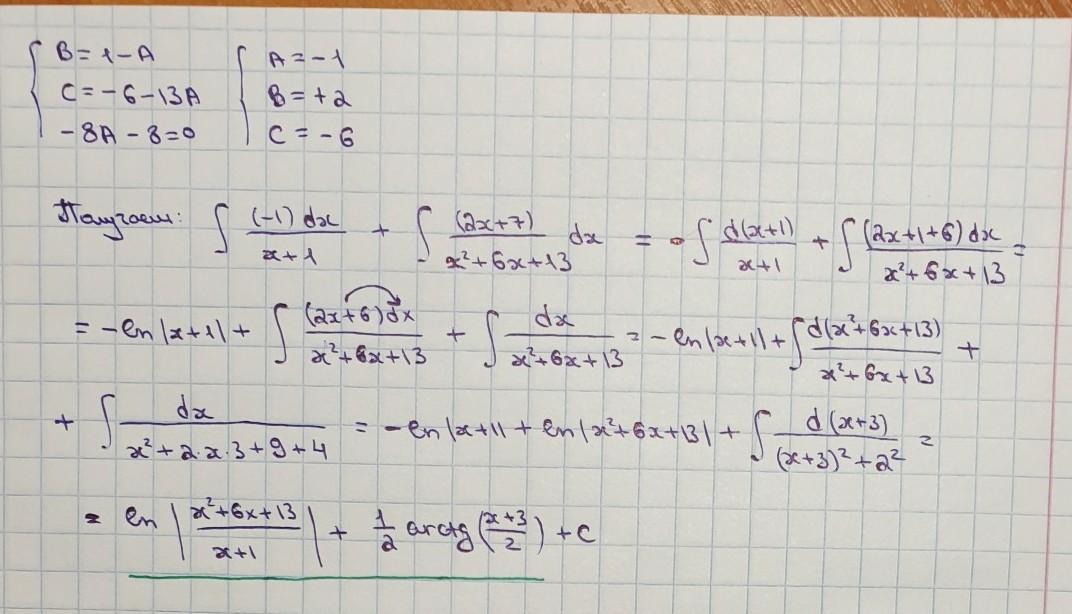 { B = 1 - A { A = -1
C = -6 - 13A B = +2
-8A - 8 = 0 C = -6
Получаем: ∫ (-1) dx / (x+1) + ∫ (2x+7) / (x²+6x+13) dx = - ∫ d(x+1) / (x+1) + ∫ (2x+1+6) dx / (x²+6x+13) =
= -ln|x+1| + ∫ (2x+6) dx / (x²+6x+13) + ∫ dx / (x²+6x+13) = -ln|x+1| + ∫ d(x²+6x+13) / (x²+6x+13) +
+ ∫ dx / (x²+2·x·3+9+4) = -ln|x+1| + ln|x²+6x+13| + ∫ d(x+3) / ((x+3)²+2²) =
= ln |(x²+6x+13) / (x+1)| + 1/2 arctg ((x+3)/2) + C